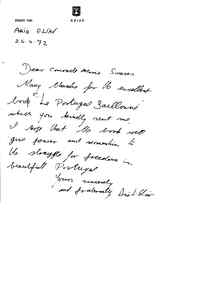 ARIE ELIAV
22.4.73
Dear comrade Mario Soares
Many thanks for the excellent
book "Le Portugal Baillonné"
which you kindly sent me.
I hope that the book will
give power and
the struggle for freedom in
beautiful Portugal
Yours sincerely
and fraternally